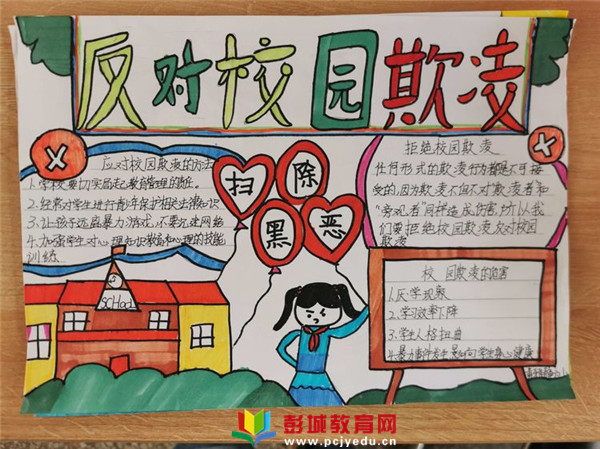 反对校园欺凌
应对校园欺凌的方法
1.学校要切实肩起教育管理的责任。
2.经常对学生进行青少年保护相关法律知识
3.让孩子远离暴力游戏,不要沉迷网络
4.加强学生对心理知识教育和心理的技能
训练
扫
除
黑
恶
拒绝校园欺凌
任何形式的欺凌行为都是不可接
受的,因为欺凌不但不对欺凌者和
“旁观者”同样造成伤害,所以我
们要拒绝校园欺凌反对校园
欺凌
校园欺凌的危害
1.厌学现象
2.学习效率下降
3.学生人格扭曲
4.暴力事件发生影响学生身心健康
SCHool
彭城教育网
www.pcjyedu.cn